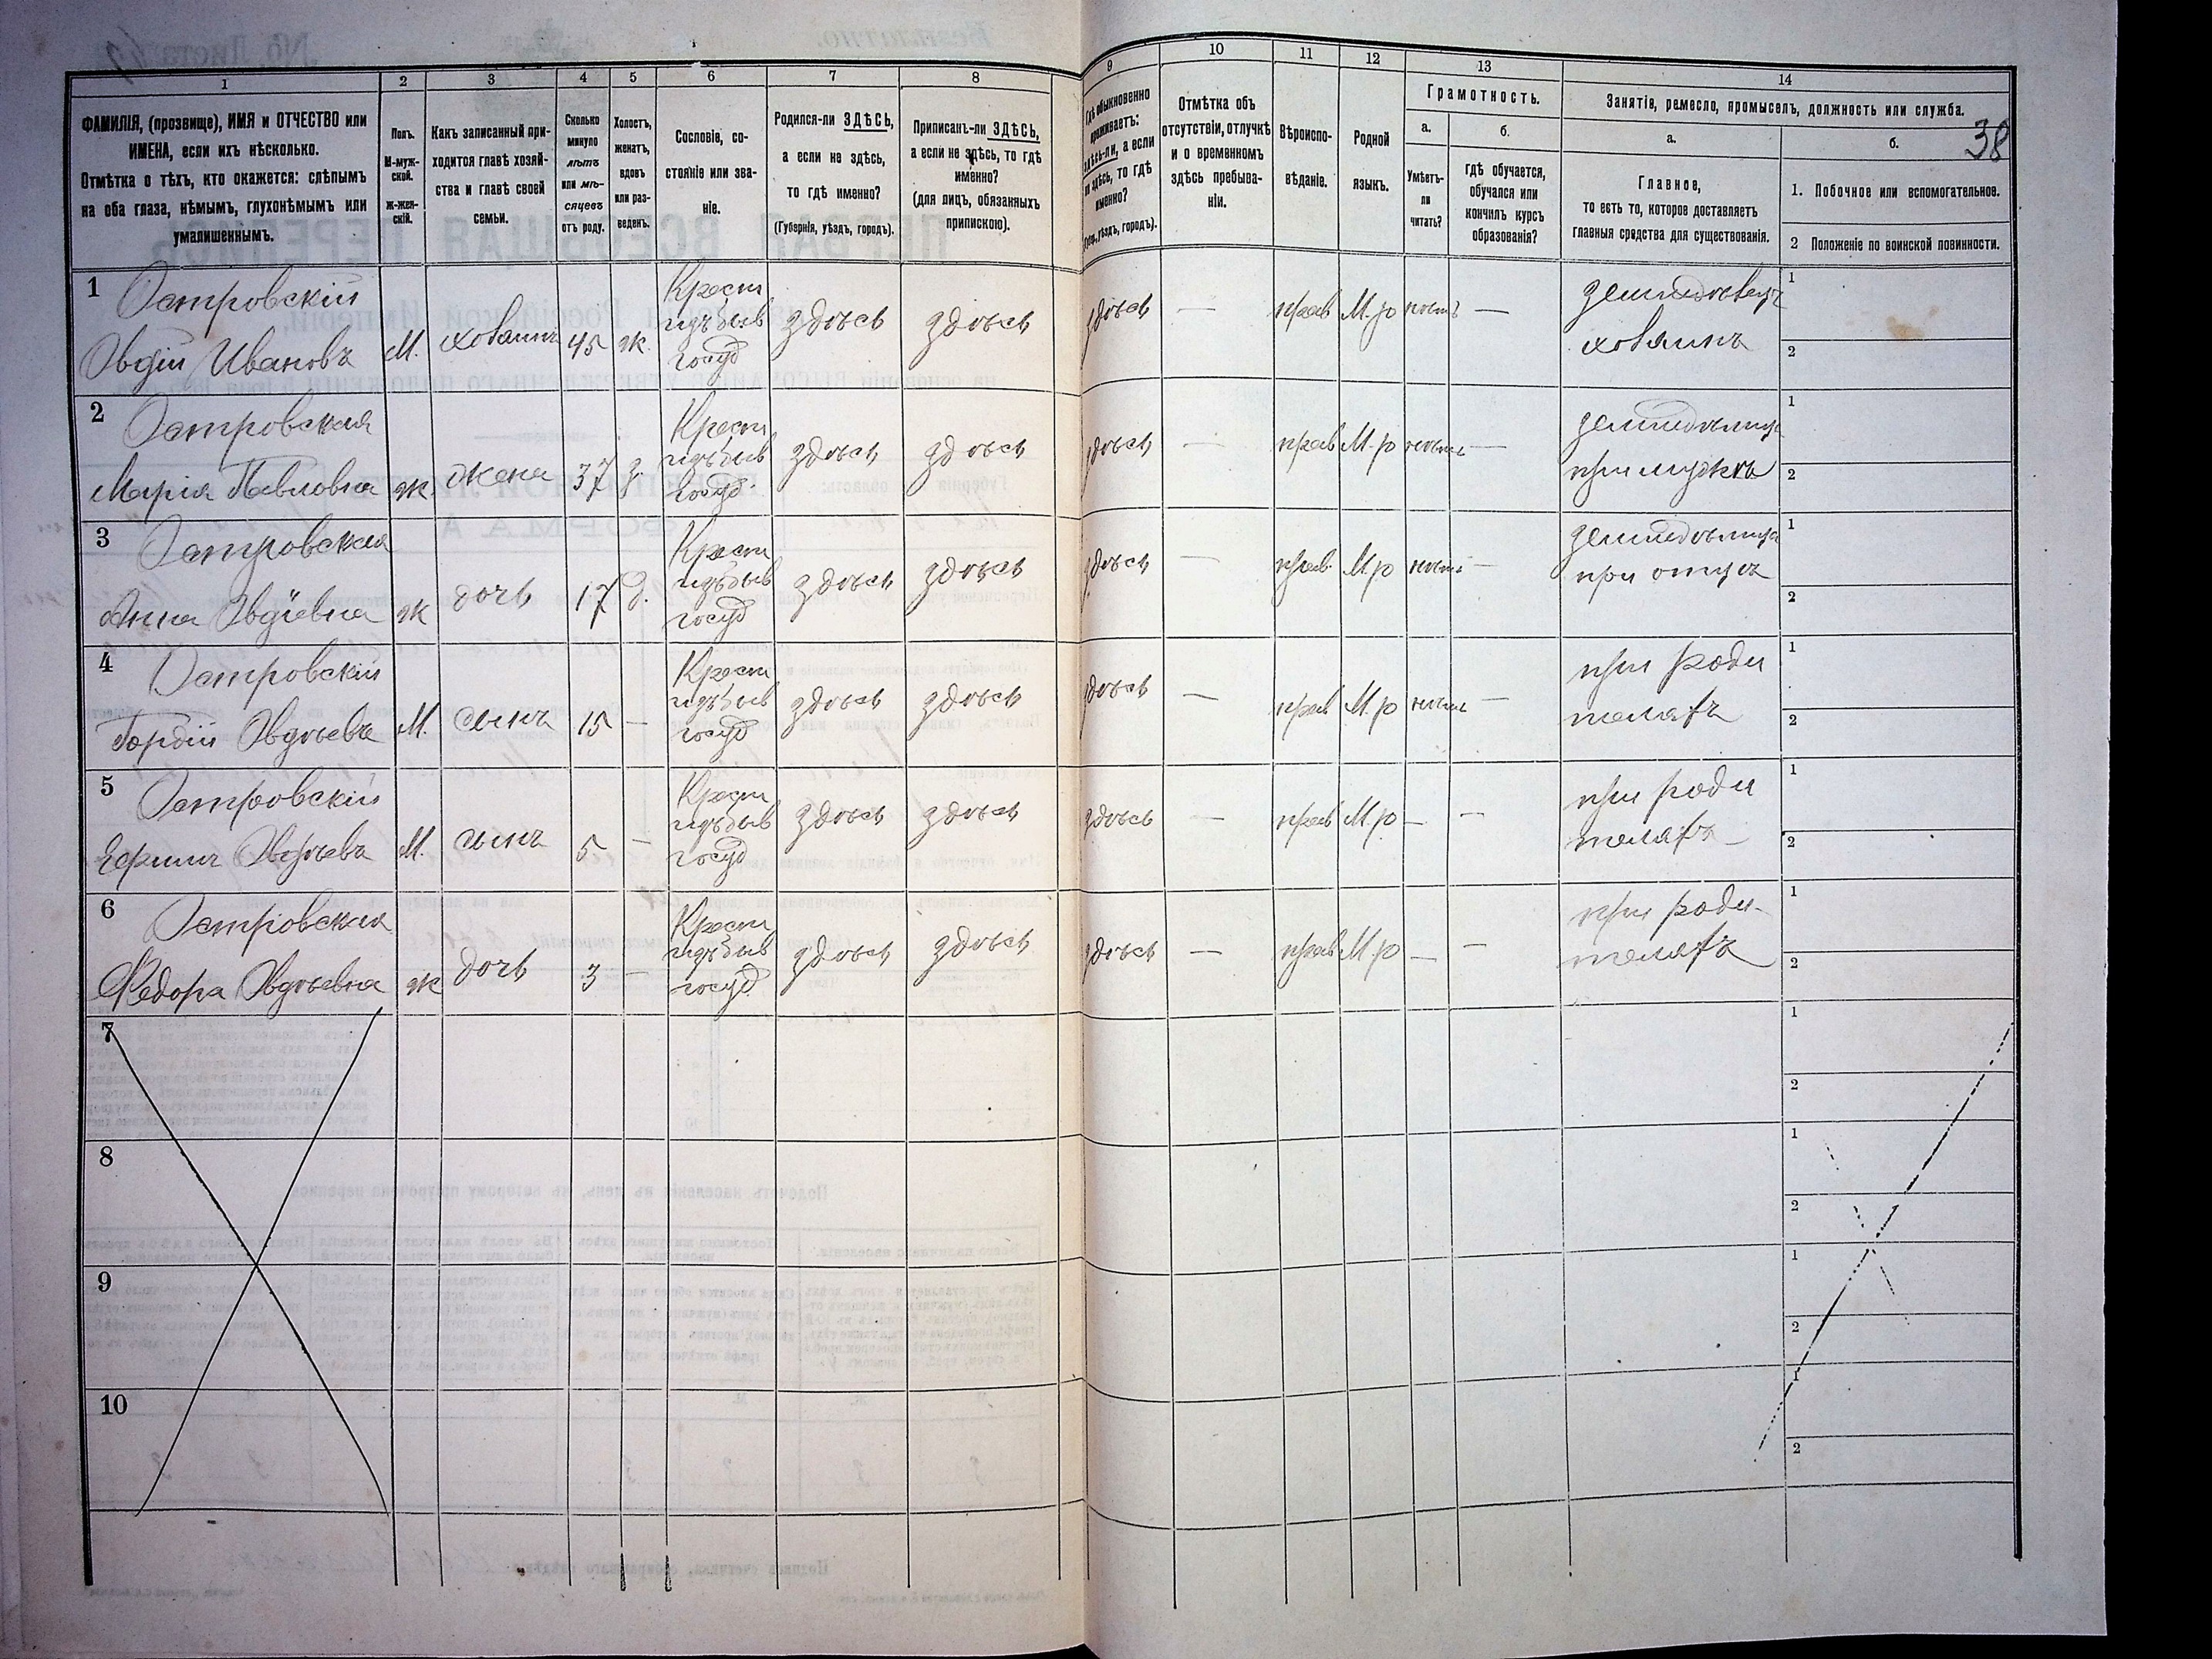 1 2 3 4 5 6 7 8 9 10 11 12 13 14
38
ФАМИЛІЯ, (прозвище), ИМЯ и ОТЧЕСТВО или
ИМЕНА, если ихъ нѣсколько.
Отмѣтка о тѣхъ, кто окажется: слѣпымъ
на оба глаза, нѣмымъ, глухонѣмымъ или
умалишеннымъ.
Полъ.
М-муж-
ской.
ж-жен-
скій.
Какъ записанный при-
ходится главѣ хозяй-
ства и главѣ своей
семьи.
Сколько
минуло
лѣтъ
или мѣ-
сяцевъ
отъ роду.
Холостъ,
женатъ,
вдовъ
или раз-
веденъ.
Сословіе, со-
стояніе или зва-
ніе.
Родился-ли ЗДѢСЬ,
а если не здѣсь,
то гдѣ именно?
(Губернія, уѣздъ, городъ).
Приписанъ-ли ЗДѢСЬ,
а если не здѣсь, то гдѣ
именно?
(для лицъ, обязанныхъ
припискою).
обыкновенно
проживаетъ:
здѣсь-ли, а если
не здѣсь, то гдѣ
именно?
уѣздъ, городъ).
Отмѣтка объ
отсутствіи, отлучкѣ
и о временномъ
здѣсь пребыва-
ніи.
Вѣроиспо-
вѣданіе.
Родной
языкъ.
Грамотность.
а.
Умѣетъ-
ли
читать?
б.
гдѣ обучается,
обучался или
кончилъ курсъ
образованія?
Занятіе, ремесло, промыселъ, должность или служба.
а.
Главное,
то есть то, которое доставляетъ
главныя средства для существованія.
б.
1. Побочное или вспомогательное.
2 Положеніе по воинской повинности.
1 Островскій
Овдій Ивановъ
М. хозяинъ 45 ж.
Крест
изъ быв
госуд
здѣсь здѣсь здѣсь — прав М.р нѣтъ —
хозяинъ
1
2
2 Островская
Марія Павловна
ж жена 37 з.
Крест
изъ быв
госуд.
здѣсь здѣсь здѣсь — прав М.р нѣтъ —
при мужѣ
1
2
3 Островская
Анна Овдіевна
ж дочь 17 д.
Крест
изъ быв
госуд
здѣсь здѣсь здѣсь — прав. М.р нѣтъ —
при отцѣ
1
2
4 Островскій
Гордій Овдѣевъ
М. сынъ 15 —
Крест
изъ быв
госуд
здѣсь здѣсь здѣсь — прав М.р нѣтъ —
при роди
теляхъ
1
2
5 Островскій
Ефимъ Овдѣевъ
М. сынъ 5 —
Крест
изъ быв
госуд
здѣсь здѣсь здѣсь — прав М.р — —
при роди
теляхъ
1
2
6 Островская
Федора Овдѣевна
ж дочь 3 —
Крест
изъ быв
госуд.
здѣсь здѣсь здѣсь — прав М.р — —
при роди-
теляхъ
1
2
7
1
2
8
1
2
9
1
2
10
1
2